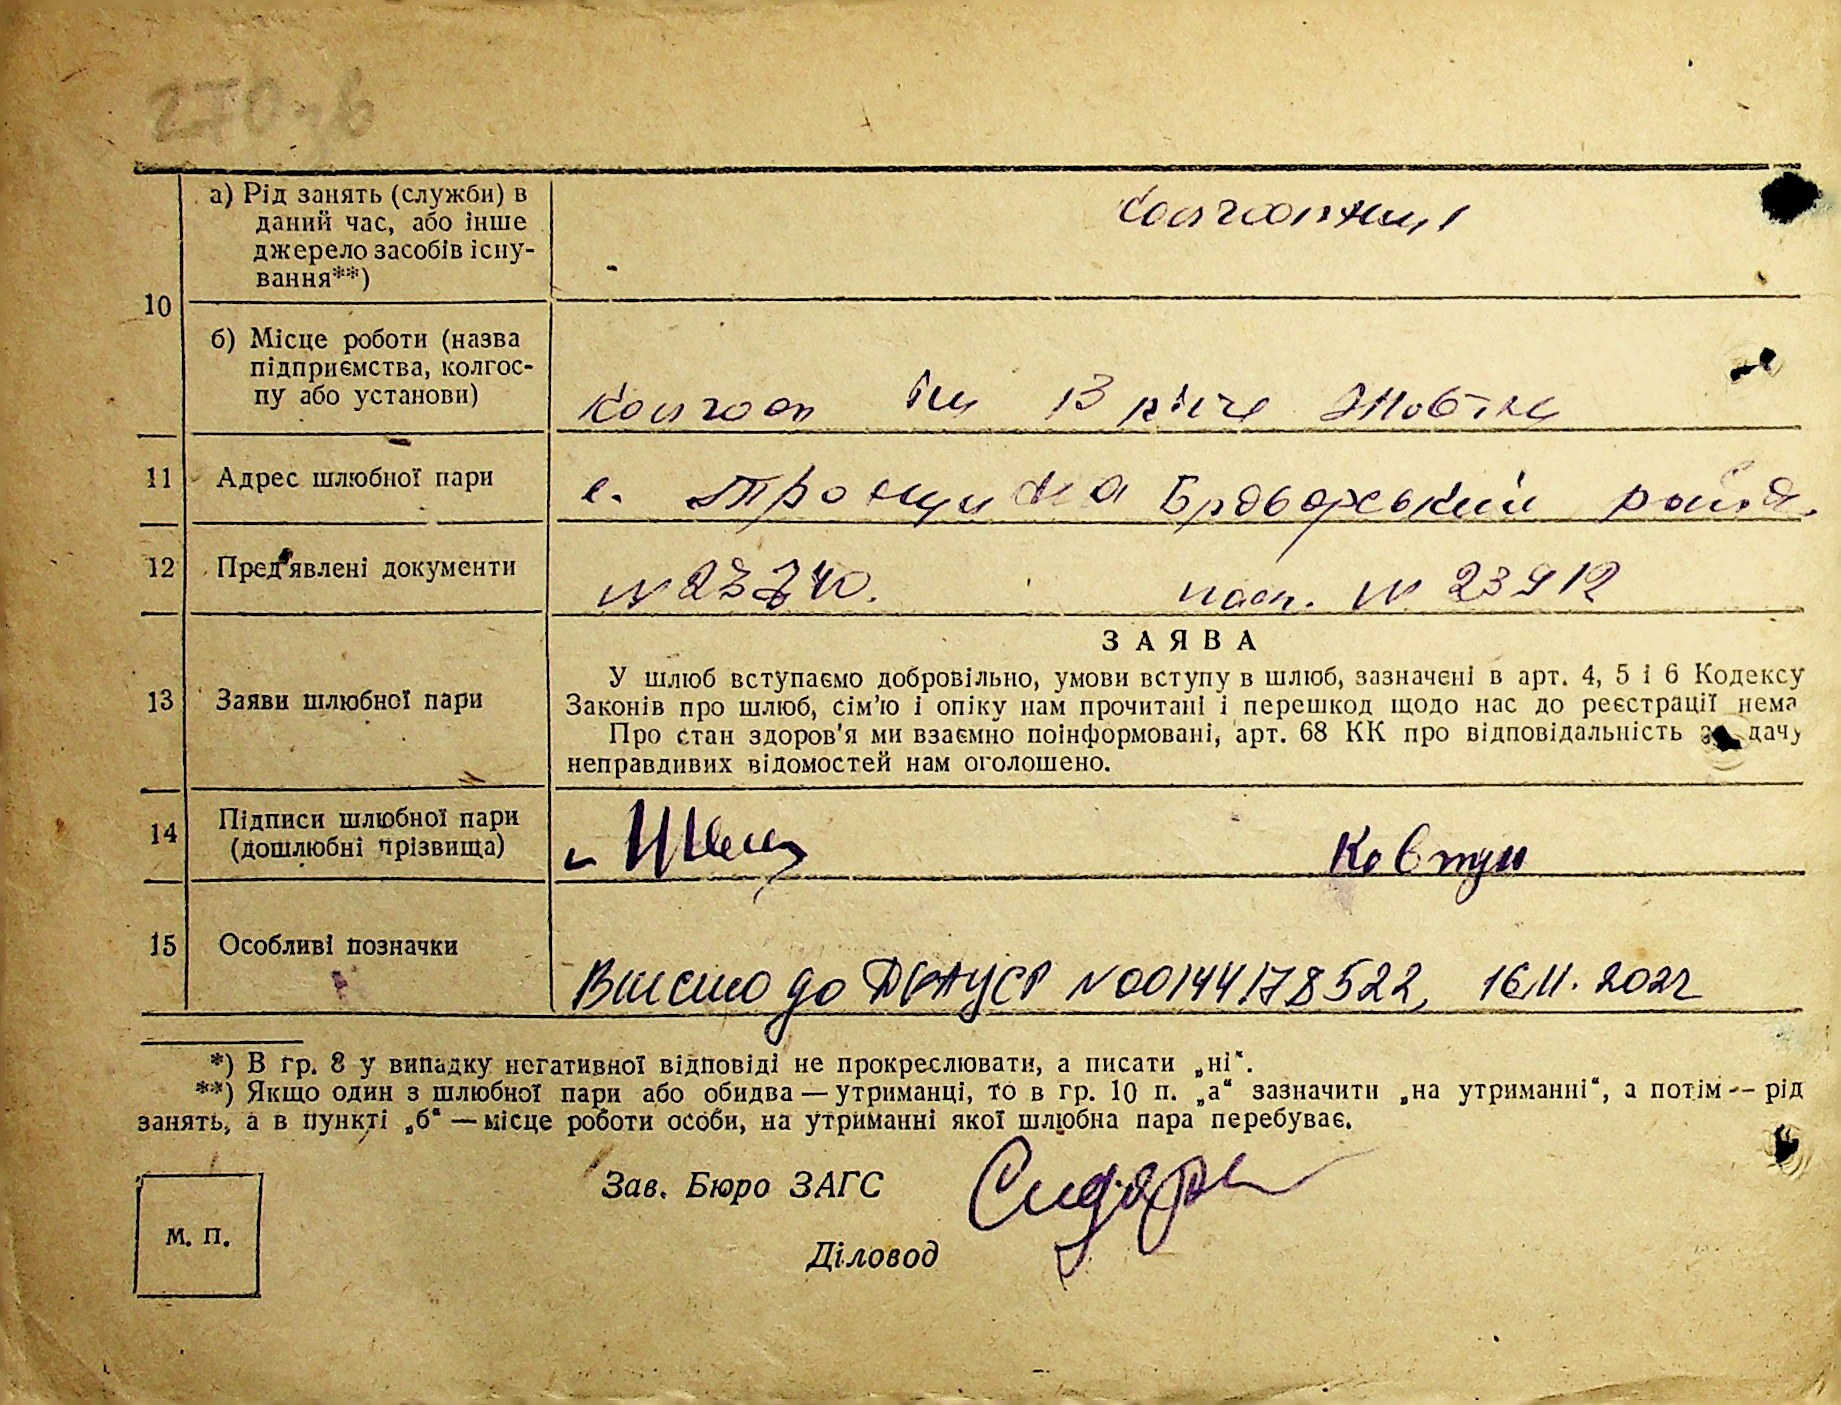 270 зв
а) Рід занять (служби) в
даний час, або інше
джерело засобів існу-
вання**)
колгоспниці
10
б) Місце роботи (назва
підприємства, колгос-
пу або установи)
колгосп ім 13 річчя Жовтня
11 Адрес шлюбної пари
с. Троєщина Броварський район.
12 Пред'явлені документи
№ 23740. пасп. № 23912
ЗАЯВА
13 Заяви шлюбної пари
У шлюб вступаємо добровільно, умови вступу в шлюб, зазначені в арт. 4, 5 і 6 Кодексу
Законів про шлюб, сім'ю і опіку нам прочитані і перешкод щодо нас до реєстрації нема
Про стан здоров'я ми взаємно поінформовані, арт. 68 КК про відповідальність за дачу
неправдивих відомостей нам оголошено.
14 Підписи шлюбної пари
(дошлюбні прізвища)
Швець Ковтун
15 Особливі позначки
Внесено до ДРАЦСГ №00144178522, 16.11.2022
*) В гр. 8 у випадку негативної відповіді не прокреслювати, а писати „ні“.
**) Якщо один з шлюбної пари або обидва — утриманці, то в гр. 10 п. „а“ зазначити „на утриманні“, а потім — рід
занять, а в пункті „б“ — місце роботи особи, на утриманні якої шлюбна пара перебуває.
Зав. Бюро ЗАГС
Діловод
М. П.